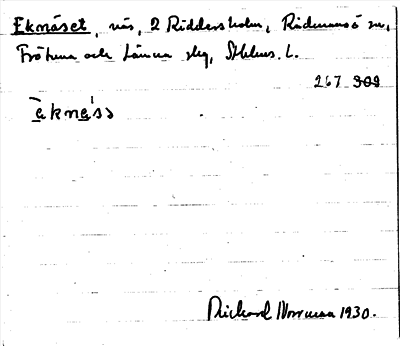 Eknäset, näs, 2 Riddersholm, Rådmansö sn,
Frötuna och Länna slg, Sthlms. L.
267 309
ēknä́ss
Rickard Norrman 1930.